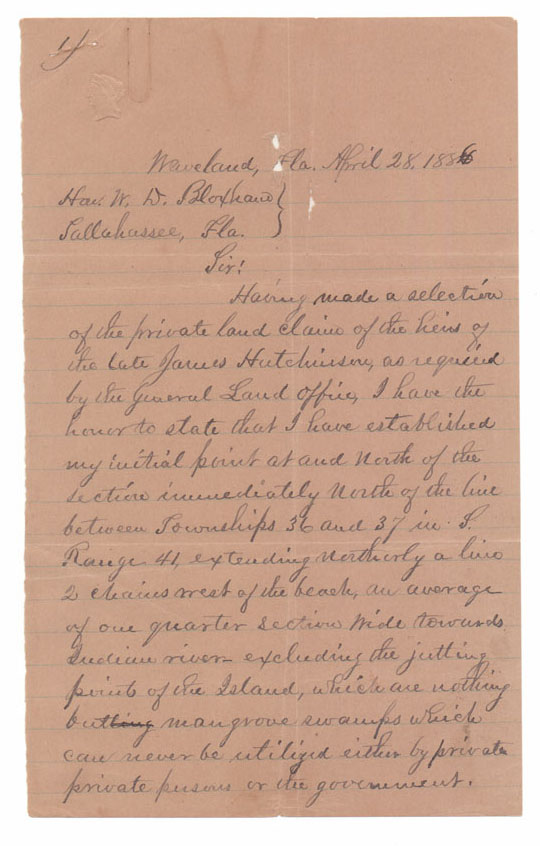 Waveland, Fla. April 28. 1886
Hon. W. D. Bloxham
Tallahassee, Fla.
Sir!
Having made a selection
of the private land claim of the heirs of
the late James Hutchinson, as required
by the General Land Office, I have the
honor to state that I have established
my initial point at and North of the
section immediately North of the line
between Townships 36 and 37 in S.
Range 41, extending northerly a line
2 chains west of the beach, an average
of one quarter section wide towards
Indian river excluding the jutting
points of the Island, which are nothing
but mangrove swamps which
can never be utilized either by private
private persons or the government.